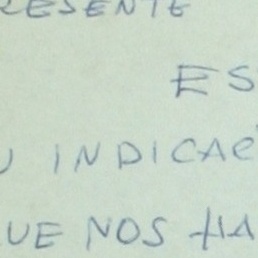 RESENTE
ES
U INDICAC
QUE NOS HA